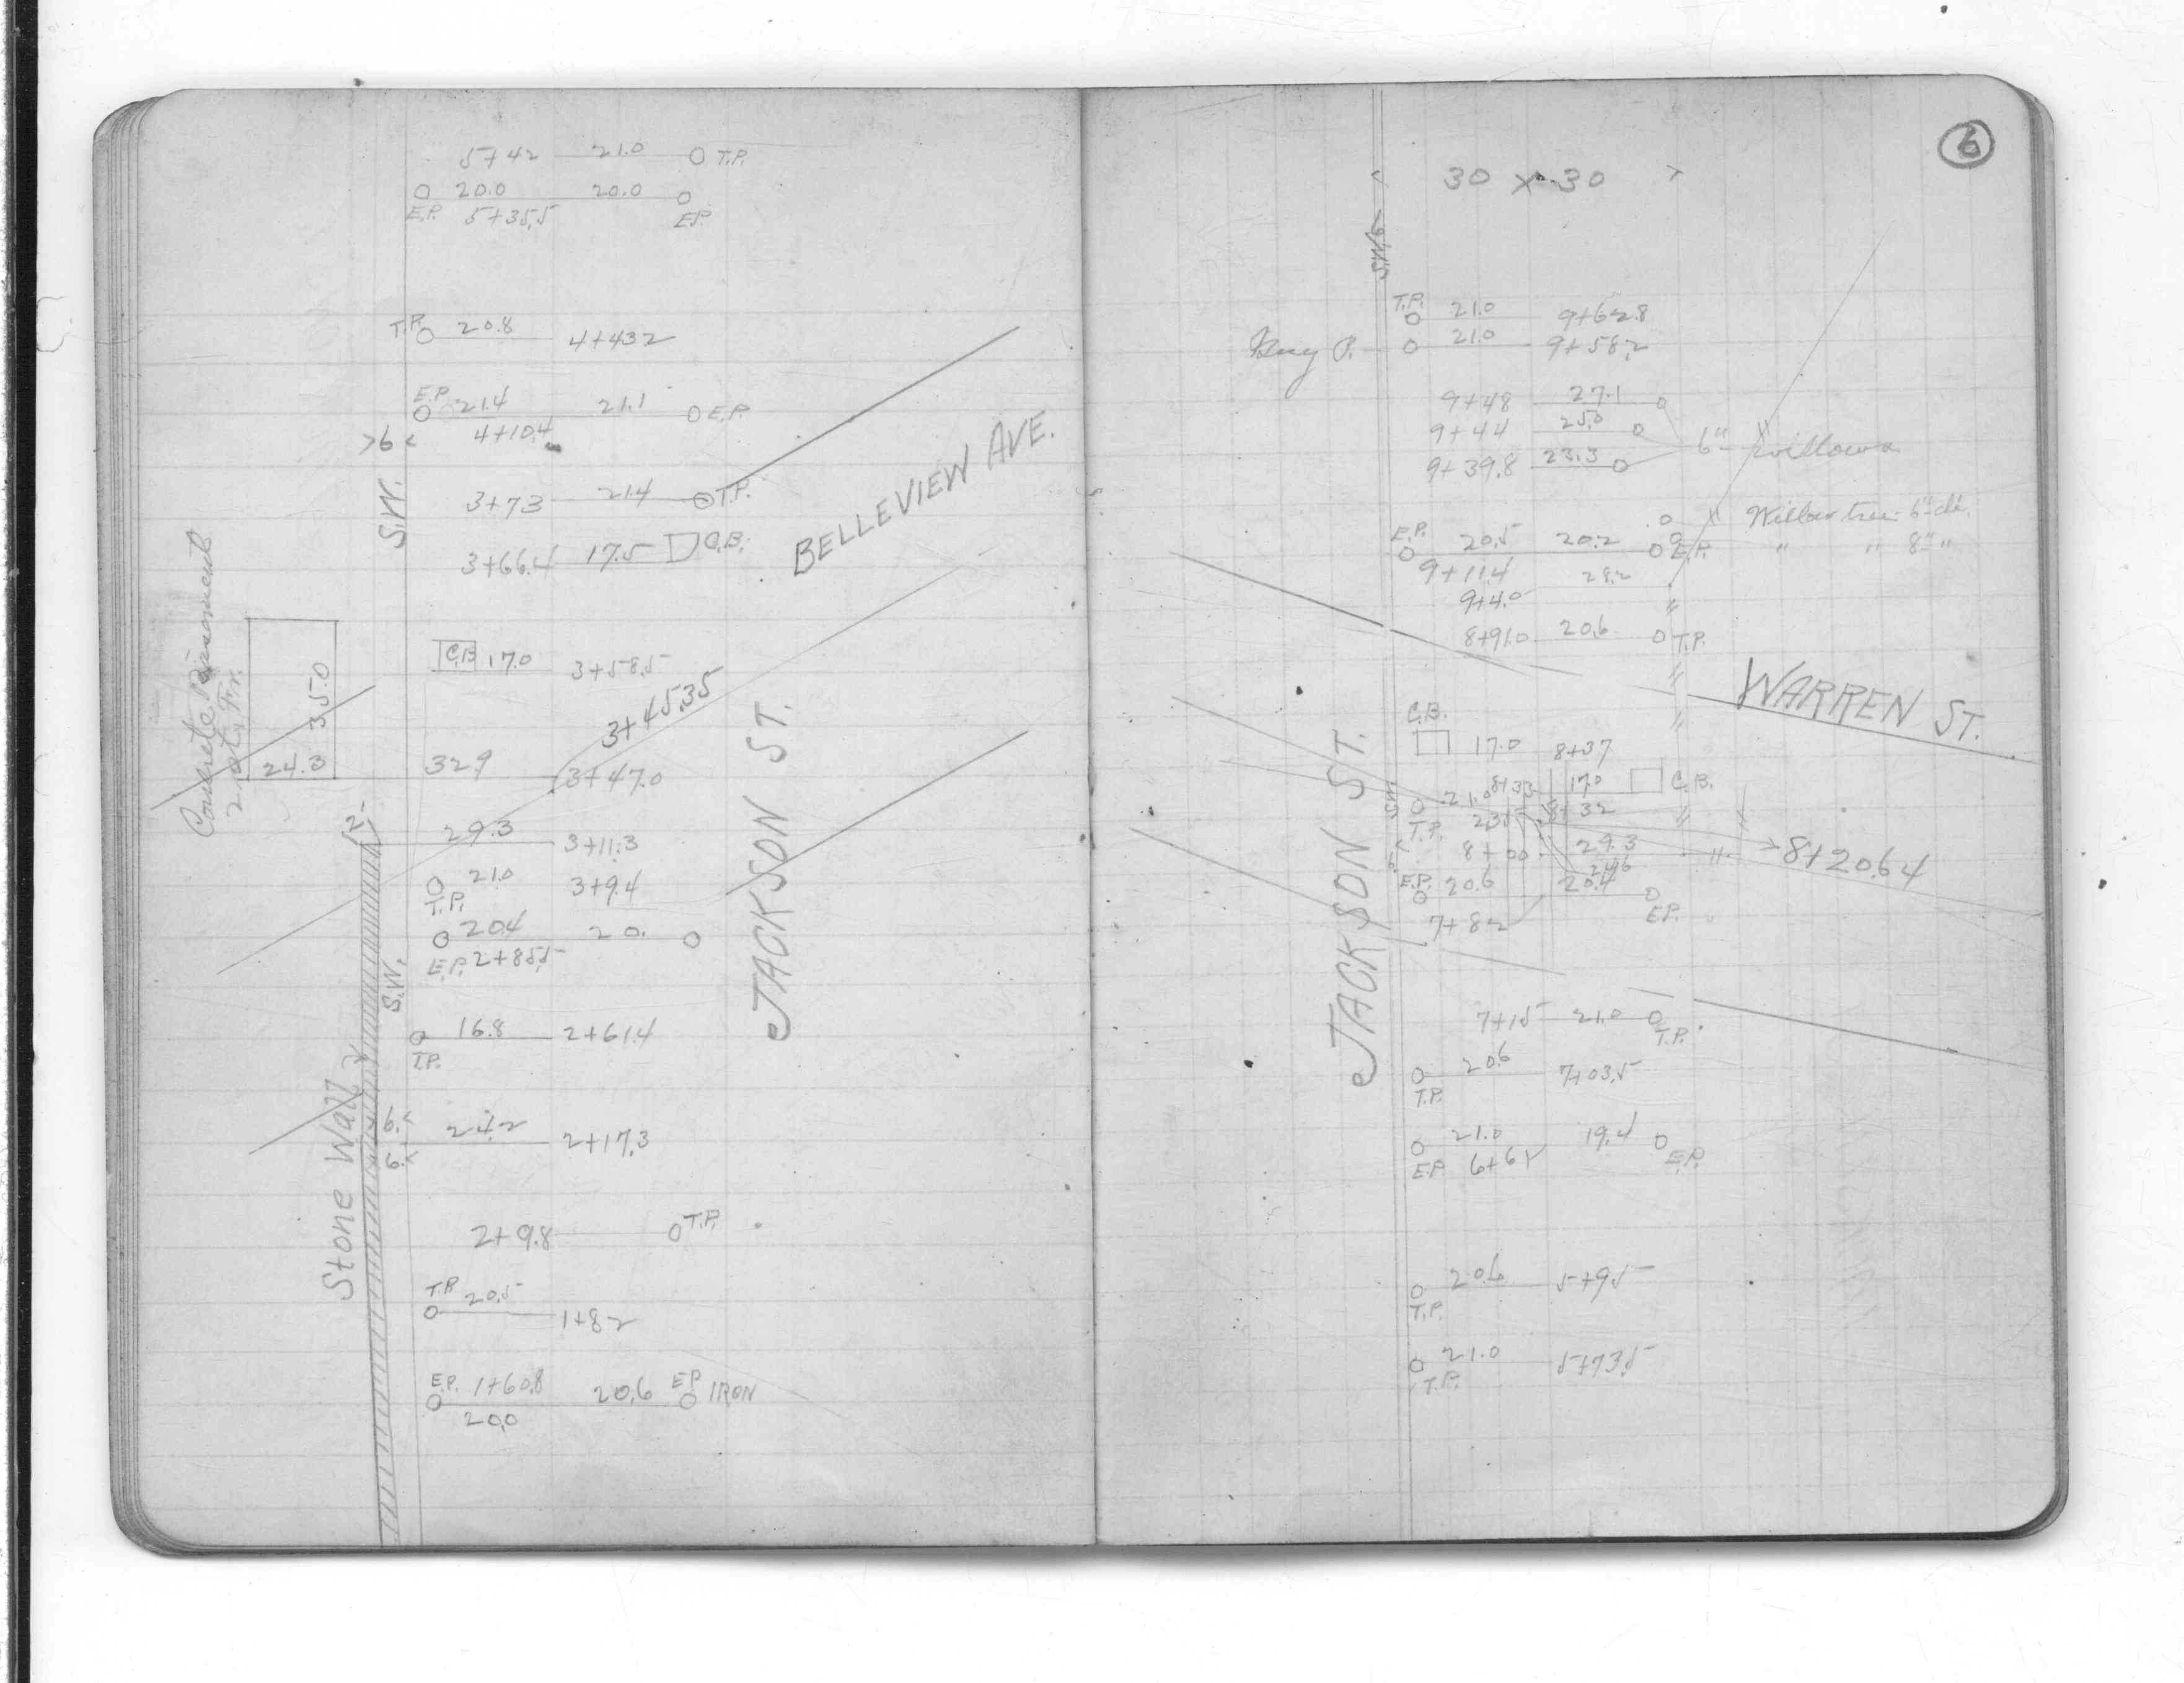 5+42 21.0 T.P.
20.0 20.0
E.P. 5+35.5 E.P.
T.P. 20.8 4+43.2
E.P. 21.4 21.1 E.P.
4+10.4
>6<
3+73 21.4 T.P.
S.W.
3+66.4 17.5 C.B.
BELLEVIEW AVE.
C.B. 17.0 3+58.5
3+45.35
Concrete
2 Fr.
35.0
24.3
32.9 3+47.0
JACKSON ST.
2-
29.3 3+11.3
21.0 3+9.4
T.P.
20.4 20.
E.P. 2+85.5
S.W.
16.8 2+61.4
T.P.
Stone Wall
6.<
2+17.3
6.<
2+9.8 T.P.
T.P. 20.5
1+82
E.P. 1+60.8 20.6 E.P. IRON
20.0
6
30 x 30
S.W.
T.P. 21.0 9+62.8
21.0 9+58.2
9+48 27.1
9+44 25.0
6" Willows
9+39.8 23.3
Willow tree 6" di.
E.P. 20.5 20.2 E.P. " " 8" "
9+11.4 28.2
9+4.0
8+91.0 20.6 T.P.
WARREN ST.
C.B.
17.0 8+37
8+33 17.0 C.B.
21.0 8+32
T.P. 23.5
8+00 29.3
8+20.64
24.6
E.P. 20.6 20.4
E.P.
7+82
JACKSON ST.
7+15 21.0 T.P.
20.6 7+03.5
T.P.
21.0 19.4
E.P. 6+61 E.P.
20.6 5+95
T.P.
21.0 5+73.5
T.P.